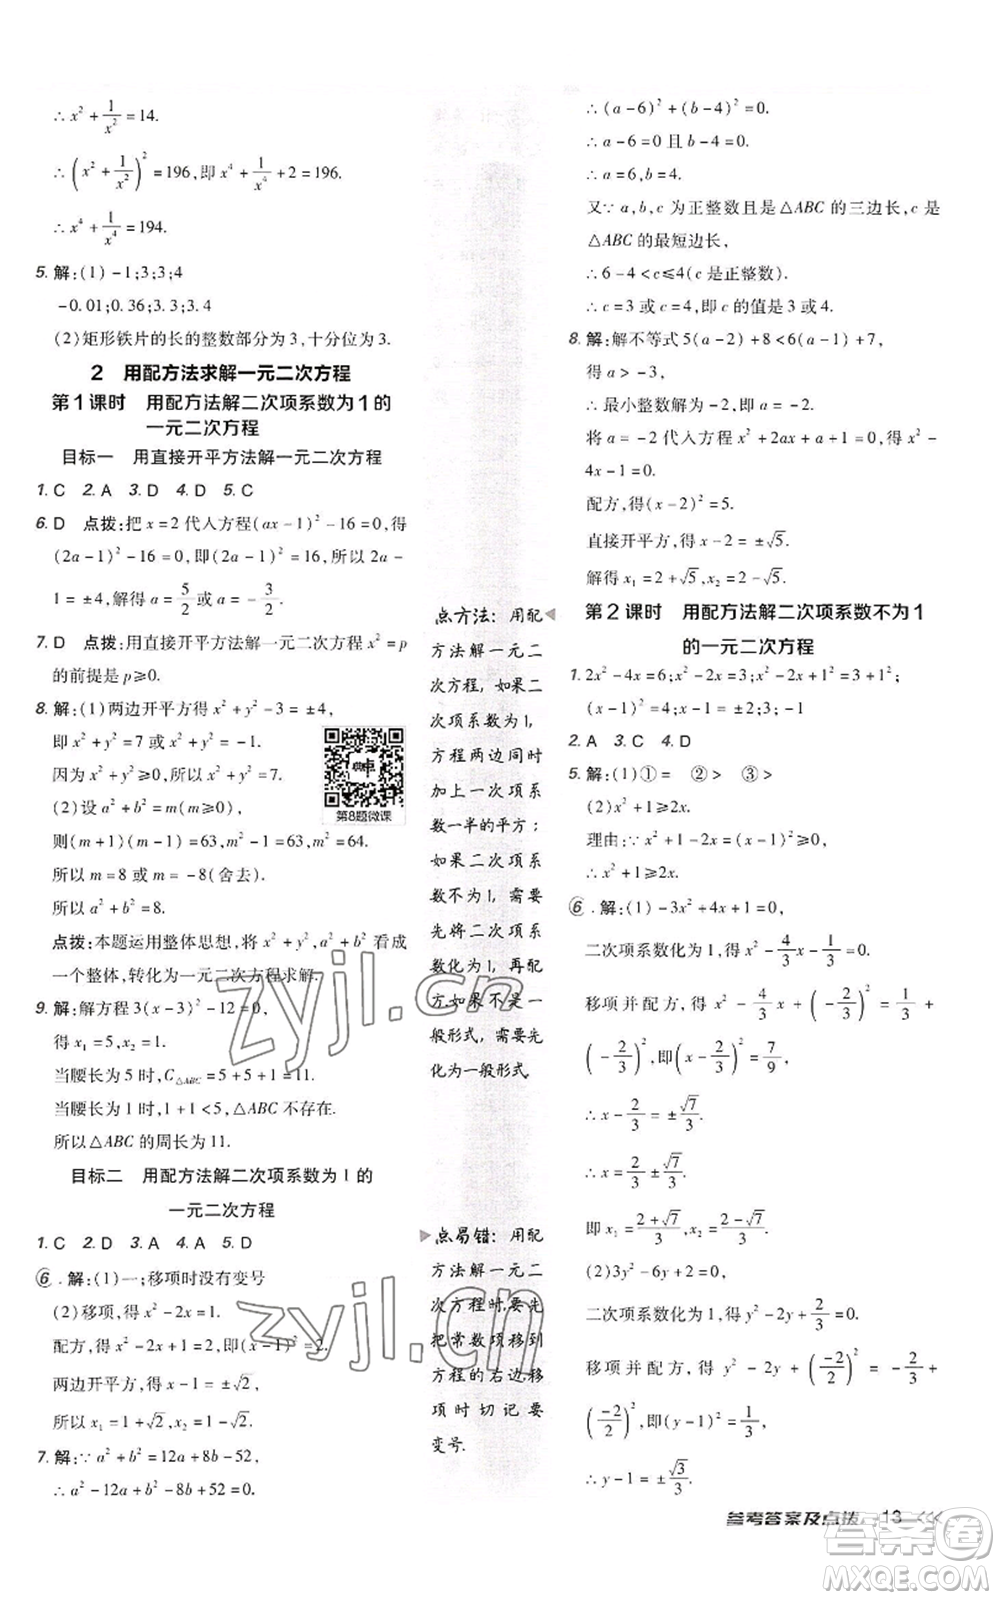 ∴ x² + 1/x² = 14.
∴ (x² + 1/x²)² = 196,即 x⁴ + 1/x⁴ + 2 = 196.
∴ x⁴ + 1/x⁴ = 194.
5. 解:(1) -1;3;3;4
-0.01;0.36;3.3;3.4
(2)矩形铁片的长的整数部分为 3,十分位为 3.
2 用配方法求解一元二次方程
第 1 课时 用配方法解二次项系数为 1 的
一元二次方程
目标一 用直接开平方法解一元二次方程
1. C 2. A 3. D 4. D 5. C
6. D 点拨:把 x = 2 代入方程(ax - 1)² - 16 = 0,得
(2a - 1)² - 16 = 0,即(2a - 1)² = 16,所以 2a -
1 = ±4,解得 a = 5/2 或 a = -3/2.
7. D 点拨:用直接开平方法解一元二次方程 x² = p
的前提是 p≥0.
8. 解:(1)两边开平方得 x² + y² - 3 = ±4,
即 x² + y² = 7 或 x² + y² = -1.
因为 x² + y² ≥0,所以 x² + y² = 7.
(2)设 a² + b² = m(m≥0),
则(m + 1)(m - 1) = 63,m² - 1 = 63,m² = 64.
所以 m = 8 或 m = -8(舍去).
所以 a² + b² = 8.
点拨:本题运用整体思想,将 x² + y²,a² + b² 看成
一个整体,转化为一元二次方程求解.
9. 解:解方程 3(x - 3)² - 12 = 0,
得 x₁ = 5,x₂ = 1.
当腰长为 5 时,C△ABC = 5 + 5 + 1 = 11.
当腰长为 1 时,1 + 1 < 5,△ABC 不存在.
所以△ABC 的周长为 11.
目标二 用配方法解二次项系数为 1 的
一元二次方程
1. C 2. D 3. A 4. A 5. D
⑥. 解:(1)一;移项时没有变号
(2)移项,得 x² - 2x = 1.
配方,得 x² - 2x + 1 = 2,即(x - 1)² = 2.
两边开平方,得 x - 1 = ±√2,
所以 x₁ = 1 + √2,x₂ = 1 - √2.
7. 解:∵ a² + b² = 12a + 8b - 52,
∴ a² - 12a + b² - 8b + 52 = 0.
第8题微课
点方法:用配
方法解一元二
次方程,如果二
次项系数为1,
方程两边同时
加上一次项系
数一半的平方;
如果二次项系
数不为1,需要
先将二次项系
数化为1,再配
方如果不是一
般形式,需要先
化为一般形式.
点易错:用配
方法解一元二
次方程时,要先
把常数项移到
方程的右边移
项时切记要
变号.
∴ (a - 6)² + (b - 4)² = 0.
∴ a - 6 = 0 且 b - 4 = 0.
∴ a = 6,b = 4.
又∵ a,b,c 为正整数且是△ABC 的三边长,c 是
△ABC 的最短边长,
∴ 6 - 4 < c≤4(c 是正整数).
∴ c = 3 或 c = 4,即 c 的值是 3 或 4.
8. 解:解不等式 5(a - 2) + 8 < 6(a - 1) + 7,
得 a > -3.
∴ 最小整数解为 -2,即 a = -2.
将 a = -2 代入方程 x² + 2ax + a + 1 = 0,得 x² -
4x - 1 = 0.
配方,得(x - 2)² = 5.
直接开平方,得 x - 2 = ±√5.
解得 x₁ = 2 + √5,x₂ = 2 - √5.
第 2 课时 用配方法解二次项系数不为 1
的一元二次方程
1. 2x² - 4x = 6;x² - 2x = 3;x² - 2x + 1² = 3 + 1²;
(x - 1)² = 4;x - 1 = ±2;3;-1
2. A 3. C 4. D
5. 解:(1)① = ② > ③ >
(2)x² + 1≥2x.
理由:∵ x² + 1 - 2x = (x - 1)² ≥0,
∴ x² + 1≥2x.
⑥. 解:(1) -3x² + 4x + 1 = 0,
二次项系数化为 1,得 x² - 4/3x - 1/3 = 0.
移项并配方,得 x² - 4/3x + (-2/3)² = 1/3 +
(-2/3)²,即(x - 2/3)² = 7/9,
∴ x - 2/3 = ±√7/3.
∴ x = 2/3 ± √7/3.
即 x₁ = (2 + √7)/3,x₂ = (2 - √7)/3.
(2)3y² - 6y + 2 = 0,
二次项系数化为 1,得 y² - 2y + 2/3 = 0.
移项并配方,得 y² - 2y + (-2/2)² = -2/3 +
(-2/2)²,即(y - 1)² = 1/3,
∴ y - 1 = ±√3/3.
参考答案及点拨 13 <<<
zyjl.cn
zyjl.cn
答案圈
MXQE.COM